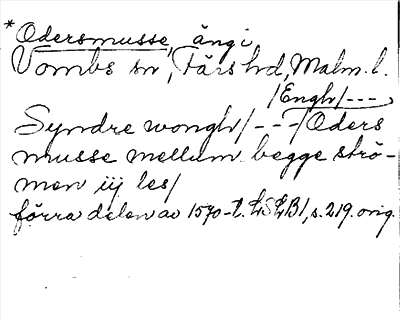 *Odersmusse, äng i
Vombs sn, Färs hd, Malm. l.
/Engh/---
Syndre wongh/---/Oders
musse mellum begge strö-
men iij les/
förra delen av 1570-t. LSLB1, s. 219. orig.